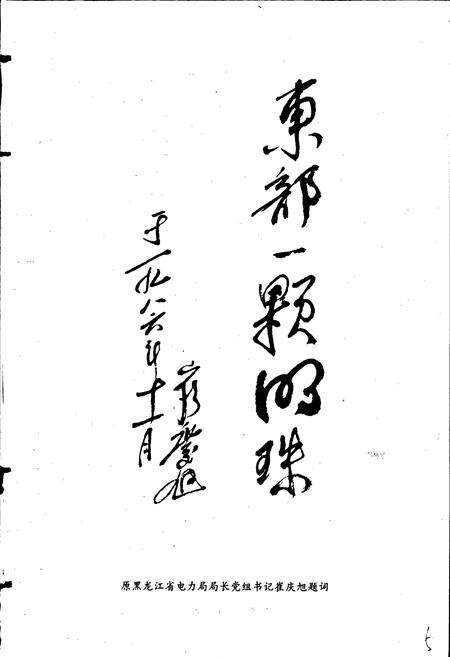 東部一颗明珠
于一九八六年十一月
崔慶旭
原黑龙江省电力局局长党组书记崔庆旭题词
5